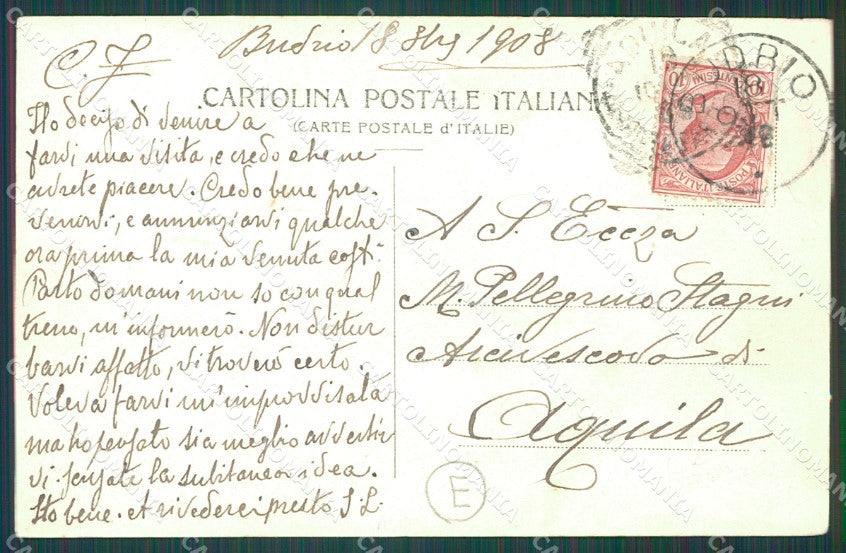 C. F. Budrio 18 8bre 1908
CARTOLINA POSTALE ITALIANA
(CARTE POSTALE d'ITALIE)
Ho deciso di venire a
farvi una visita, e credo che ne
avrete piacere. Credo bene pre-
venirvi, e annunziarvi qualche
ora prima la mia venuta costì
Parto domani non so con qual
treno, m'informerò. Non distur
barvi affatto, vi troverò certo.
Voleva farvi un'improvvisata
ma ho pensato sia meglio avvertir
vi. scusate la subitanea idea.
Sto bene. Arrivederci presto S. L.
A S. Ecc̃za
M. Pellegrino Stagni
Arcivescovo di
Aquila
E
BUDRIO
POSTE ITALIANE
CARTOLINOMANIA